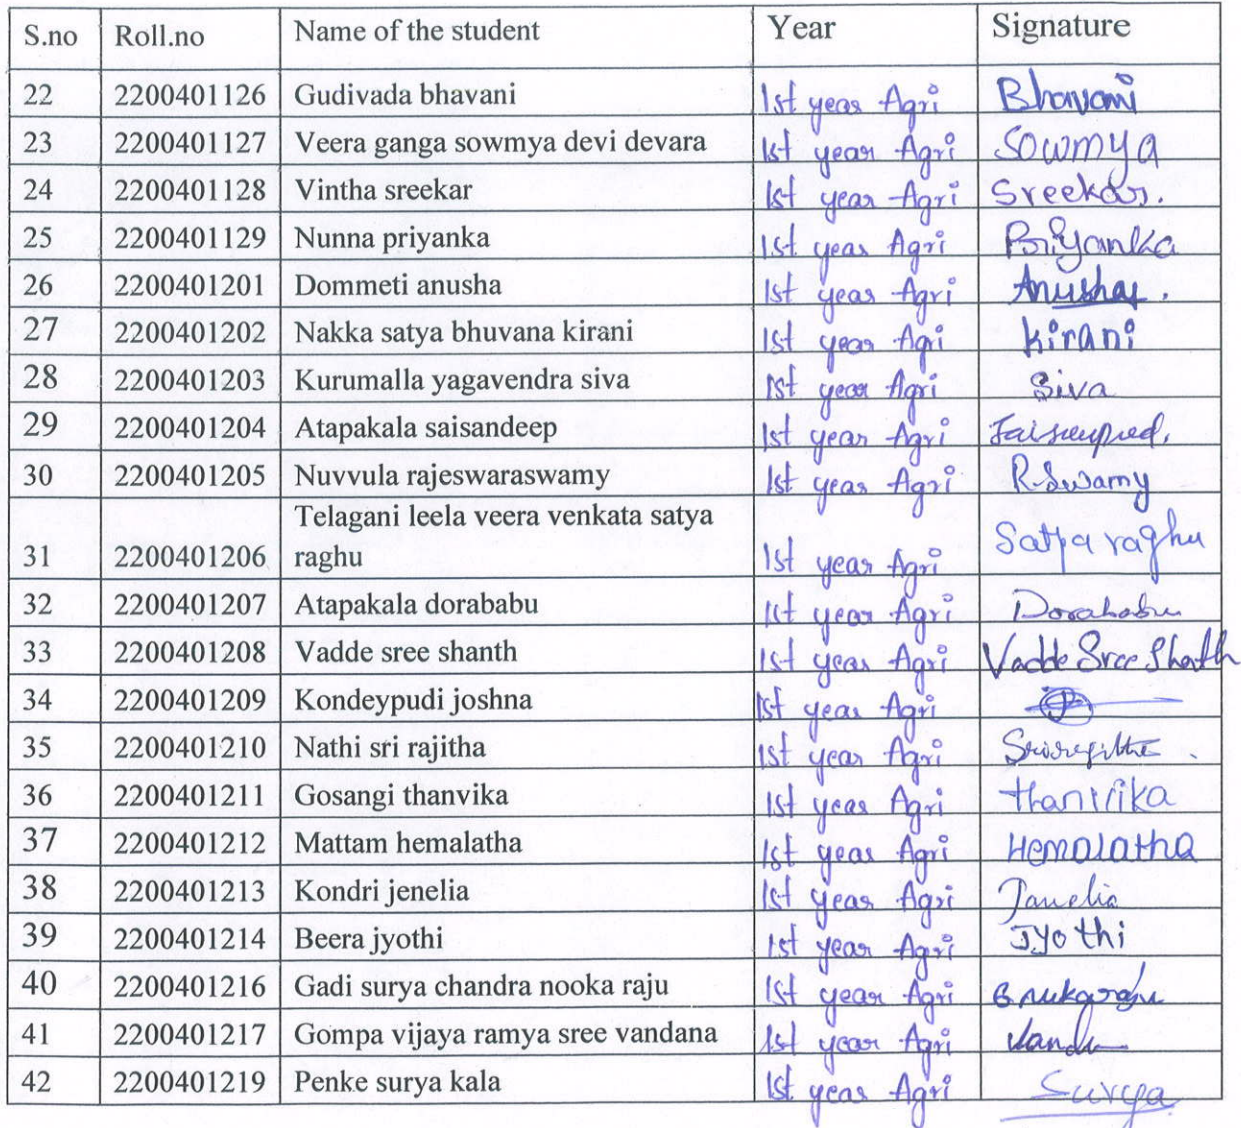 S.no Roll.no Name of the student Year Signature
22 2200401126 Gudivada bhavani 1st year Agri Bhavani
23 2200401127 Veera ganga sowmya devi devara 1st year Agri Sowmya
24 2200401128 Vintha sreekar 1st year Agri Sreekar.
25 2200401129 Nunna priyanka 1st year Agri Priyanka
26 2200401201 Dommeti anusha 1st year Agri Anusha.
27 2200401202 Nakka satya bhuvana kirani 1st year Agri kirani
28 2200401203 Kurumalla yagavendra siva 1st year Agri Siva
29 2200401204 Atapakala saisandeep 1st year Agri
30 2200401205 Nuvvula rajeswaraswamy 1st year Agri R.Swamy
Telagani leela veera venkata satya
31 2200401206 raghu 1st year Agri Satya raghu
32 2200401207 Atapakala dorababu 1st year Agri Dorababu
33 2200401208 Vadde sree shanth 1st year Agri Vadde Sree Shanth
34 2200401209 Kondeypudi joshna 1st year Agri
35 2200401210 Nathi sri rajitha 1st year Agri
36 2200401211 Gosangi thanvika 1st year Agri thanvika
37 2200401212 Mattam hemalatha 1st year Agri Hemalatha
38 2200401213 Kondri jenelia 1st year Agri Janelia
39 2200401214 Beera jyothi 1st year Agri Jyothi
40 2200401216 Gadi surya chandra nooka raju 1st year Agri G nukaraju
41 2200401217 Gompa vijaya ramya sree vandana 1st year Agri
42 2200401219 Penke surya kala 1st year Agri Surya